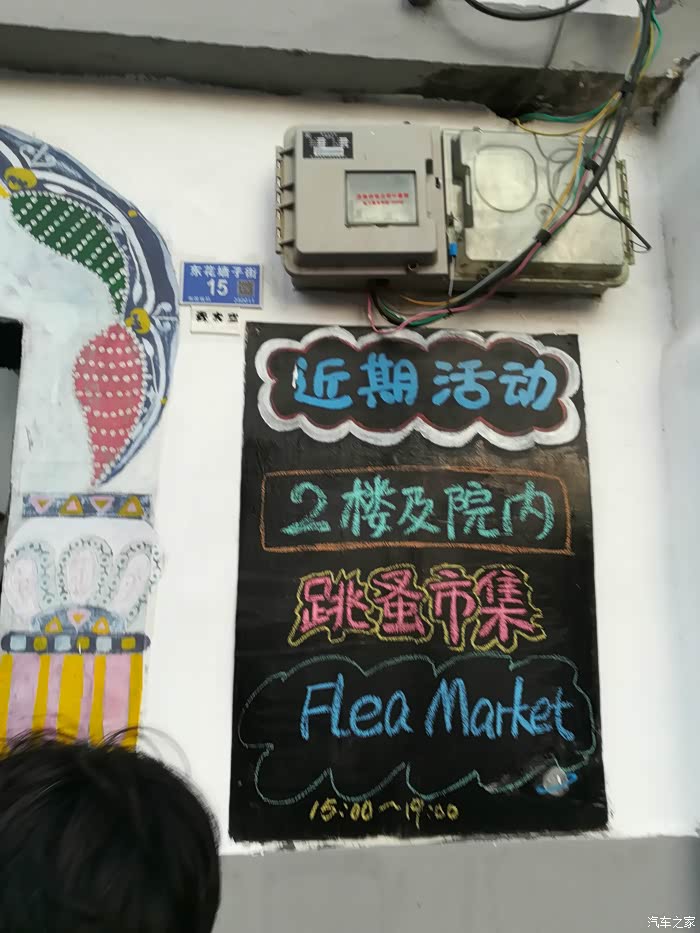 东花墙子街
15
近期活动
2楼及院内
跳蚤市集
Flea Market
15:00~19:00
汽车之家